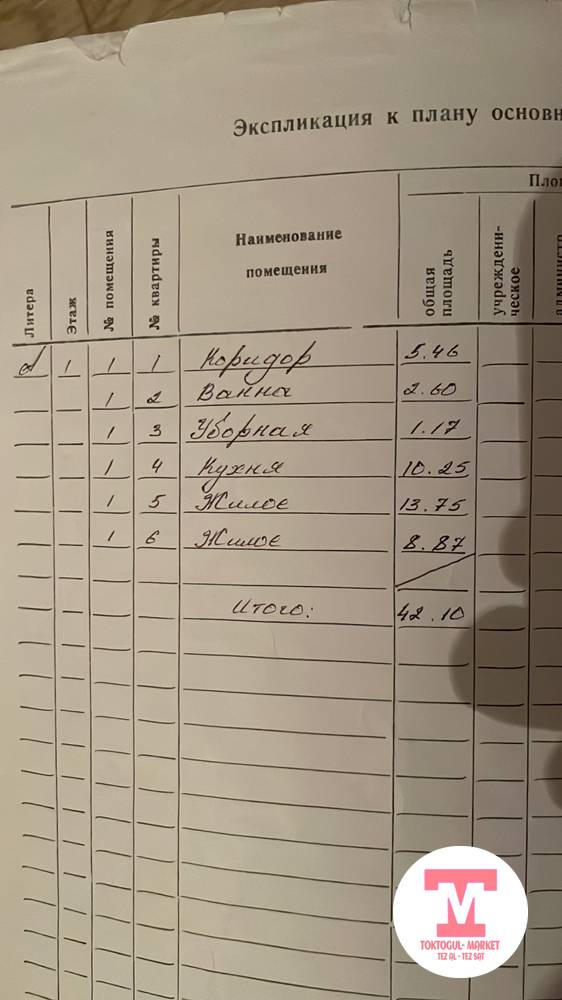 Экспликация к плану основн
Литера
Этаж
№ помещения
№ квартиры
Наименование
помещения
общая
площадь
учреждени-
ческое
1 1 1 Коридор 5.46
1 2 Ванна 2.60
1 3 Уборная 1.17
1 4 Кухня 10.25
1 5 Жилое 13.75
1 6 Жилое 8.87
Итого: 42.10
TM
TOKTOGUL- MARKET
TEZ AL - TEZ SAT